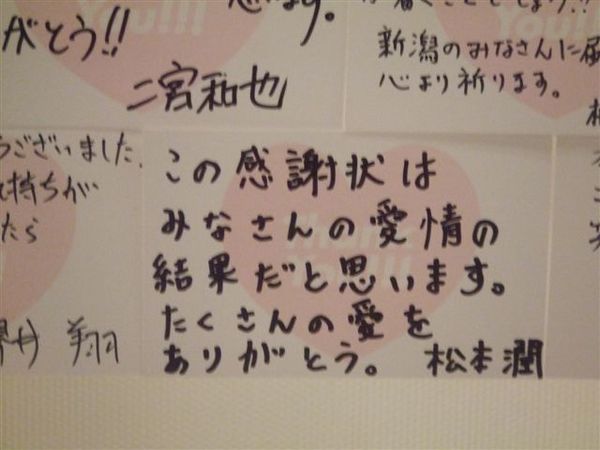 がとう!!
思います。
二宮和也
You!!!
新潟のみなさんに届
心より祈ります。
うございました。
気持ちが
たら
翔
この感謝状は
みなさんの愛情の
結果だと思います。
たくさんの愛を
ありがとう。 松本潤
Thank
You!!!